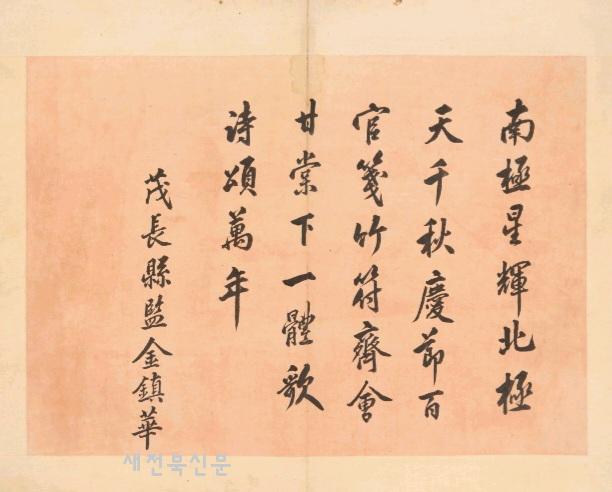 南極星輝北極
天千秋慶節百
官箋竹符齊會
甘棠下一體歌
詩頌萬年
茂長縣監金鎮華
새전북신문